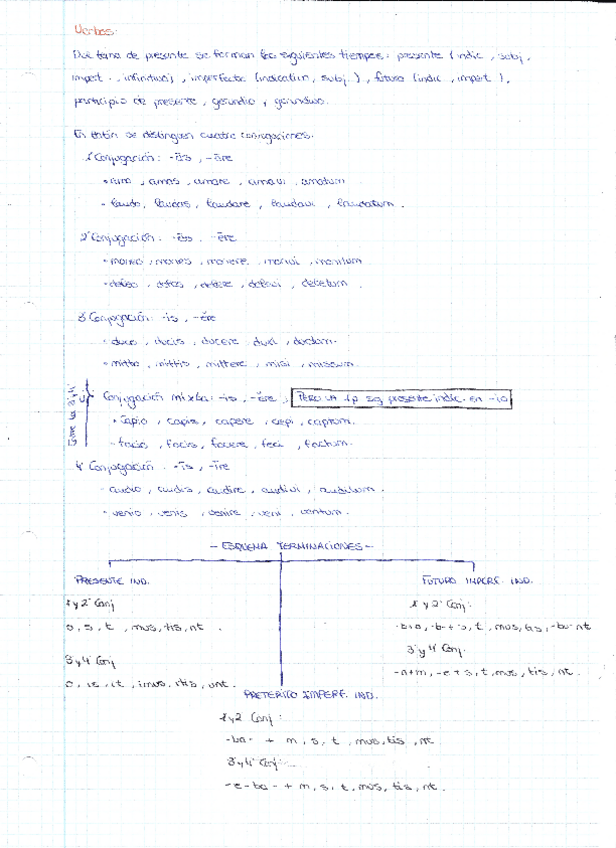 Verbos:
Del tema de presente se forman los siguientes tiempos: presente (indic, subj,
imperat., infinitivo), imperfecto (indicativo, subj.), futuro (indic, imperat.),
participio de presente, gerundio y gerundivo.
En latín se distinguen cuatro conjugaciones.
1ªConjugación: -ās, -āre
• amo, amas, amare, amavi, amatum
• laudo, laudas, laudare, laudavi, laudatum.
2ªConjugación: -ēs, -ēre
• moneo, mones, monere, monui, monitum
• debeo, debes, debere, debui, debitum.
3ªConjugación: -is, -ĕre
• duco, ducis, ducere, duxi, ductum.
• mitto, mittis, mittere, misi, missum.
Entre la 3ª y 4ª
Conjugación mixta: -is, -ĕre, PERO LA 1ªp sg presente indic. en -io
• capio, capis, capere, cepi, captum.
• facio, facis, facere, feci, factum.
4ªConjugación: -īs, -īre
• audio, audis, audire, audivi, auditum.
• venio, venis, venire, veni, ventum.
- ESQUEMA TERMINACIONES -
PRESENTE IND.
1ª y 2ª Conj
o, s, t, mus, tis, nt.
3ª y 4ª Conj
o, is, it, imus, itis, unt.
FUTURO IMPERF. IND.
1ª y 2ª Conj.
-b+o, -b+s, t, mus, tis, -bu-nt
3ª y 4ª Conj.
-a+m, -e+s, t, mus, tis, nt.
PRETERITO IMPERF. IND.
1ª y 2ª Conj:
-ba- + m, s, t, mus, tis, nt.
3ª y 4ª Conj:
-e-ba- + m, s, t, mus, tis, nt.